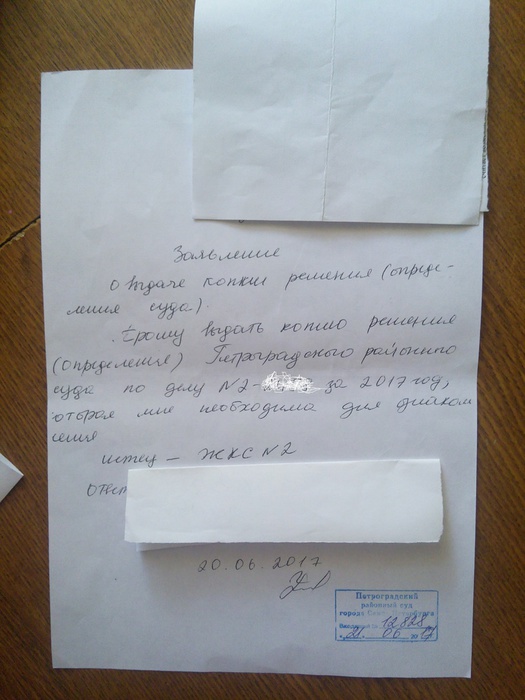 Заявление
о выдаче копии решения (опреде-
ления суда).
Прошу выдать копию решения
(определения) Петроградского районного
суда по делу №2- за 2017 год,
оторая мне необходима для
ления
истец – ЖКС №2
Отве
20.06.2017
Петроградский
районный суд
города Санкт-Петербурга
12828
21 06 2017